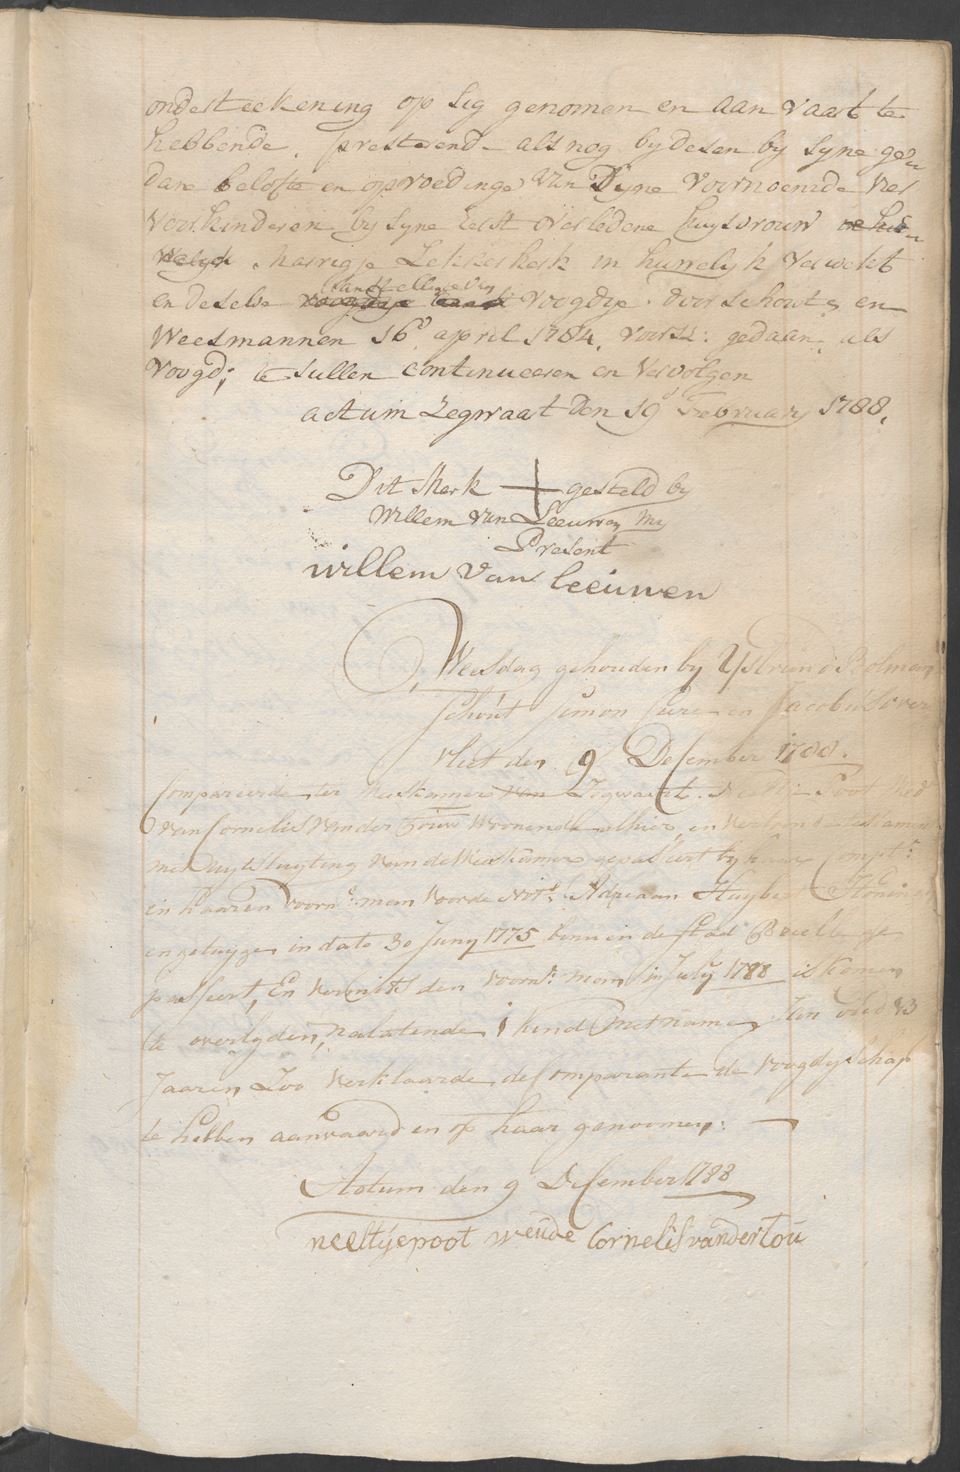 ondesteekening op sig genomen en aan vaart te
hebbende. presterend als nog by desen by syne ged
dane belofte en opvoedinge van Syne voornoemde
voorkinderen by syne eerst overledene huysvrouw
marrigje Lekkerkerk in huwelyk verwekt
aanstellinge van
en deselve voogdye door schout en
Weesmannen 16e april 1784 voors: gedaan, als
voogd; te sullen continueeren en vervolgen
actum Zegwaart den 19e February 1788.
Dit Merk + gesteld by
Willem van Leeuwen My
Present
willem van leeuwen
Weesdag gehouden by IJsbrand Bosman
Schout Simon en Jacobus over
vliet den 9 December 1788.
Compareerde ter Weeskamer van Zegwaart. Neeltie Poot Wed
van Cornelis van der Touw woonende alhier, en
met uytsluyting van de Weeskamer gepasseert by haar Compte
en haaren voorn: man voor de Nots: Adriaan Huybert
en getuygen in dato 30 Juny 1775 binnen de stad Brielle ge
passeert, En vermits den voorn: man in July 1788 is komen
te overlyden, nalatende 1 kind met name oud 13
Jaaren Zoo verklaarde de Comparante de voogdyschap
te hebben aanvaard en op haar genoomen:
Actum den 9 December 1788
neeltye poot weude Cornelis vander tou